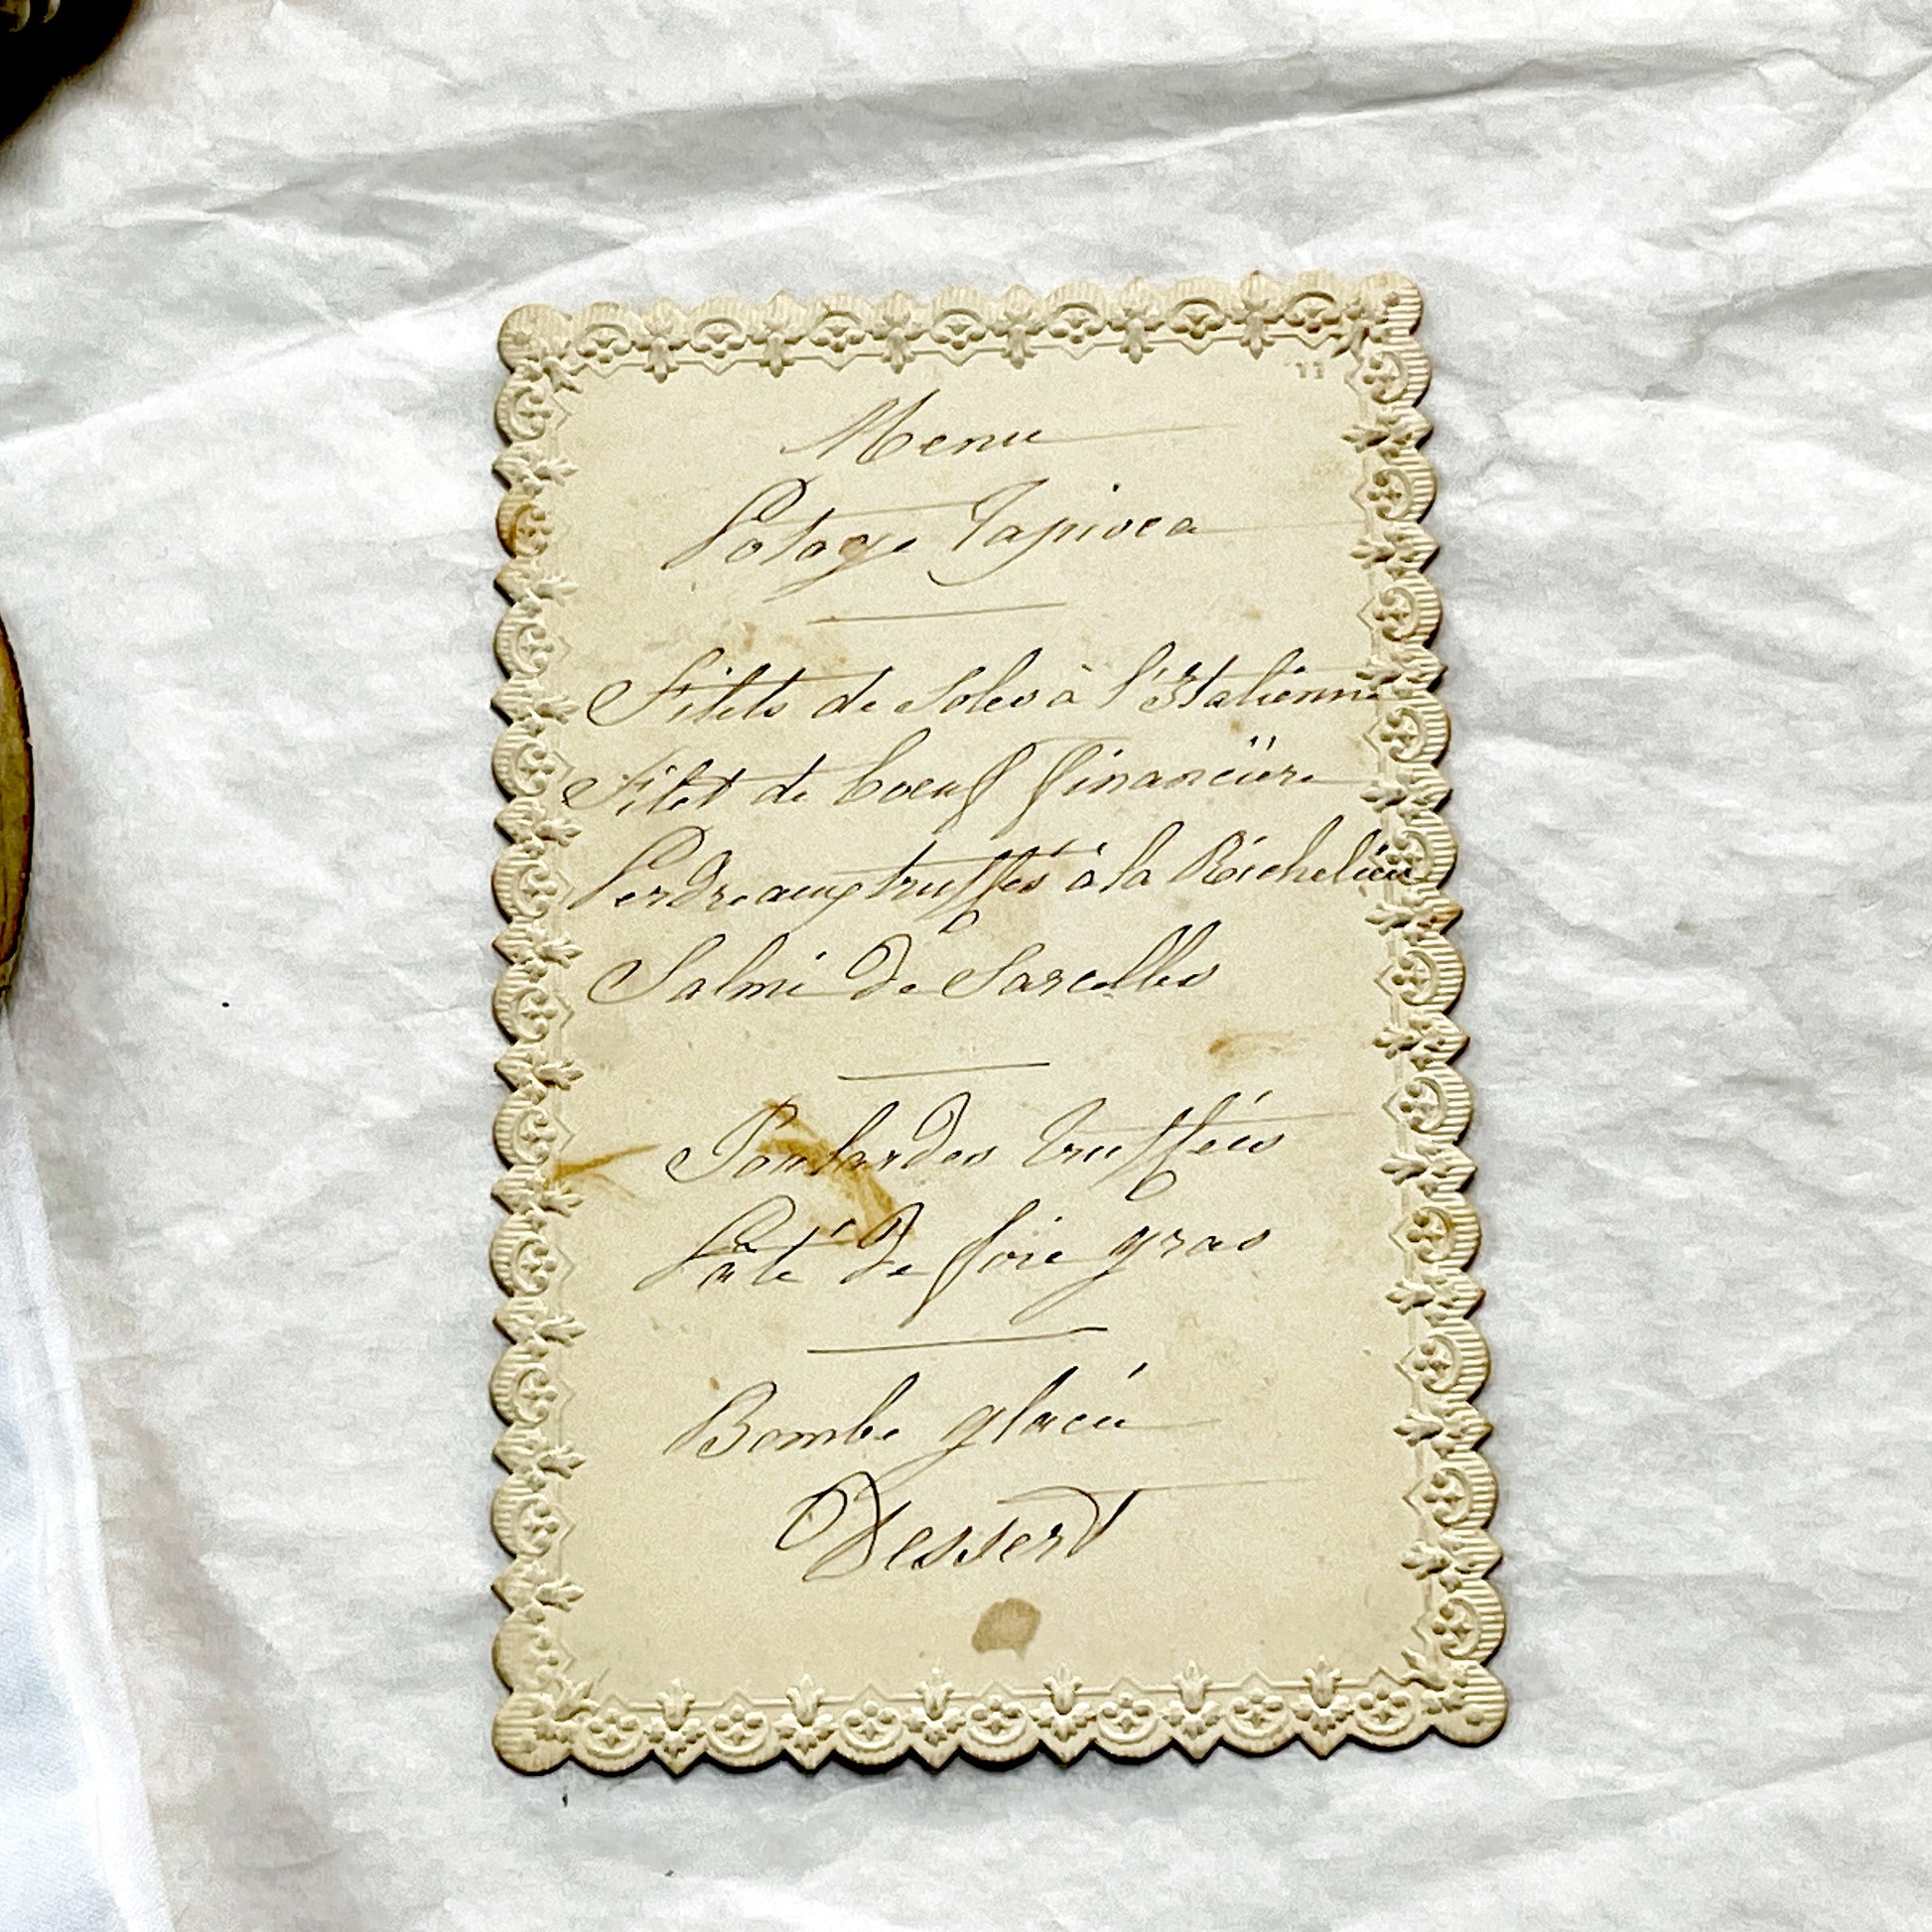 Menu
Potage Tapioca
Filets de Soles à l'Italienne
Filet de boeuf financière
Perdreaux truffés à la Richelieu
Salmi de Sarcelles
Poulardes truffées
Pâté de foie gras
Bombe glacée
Dessert